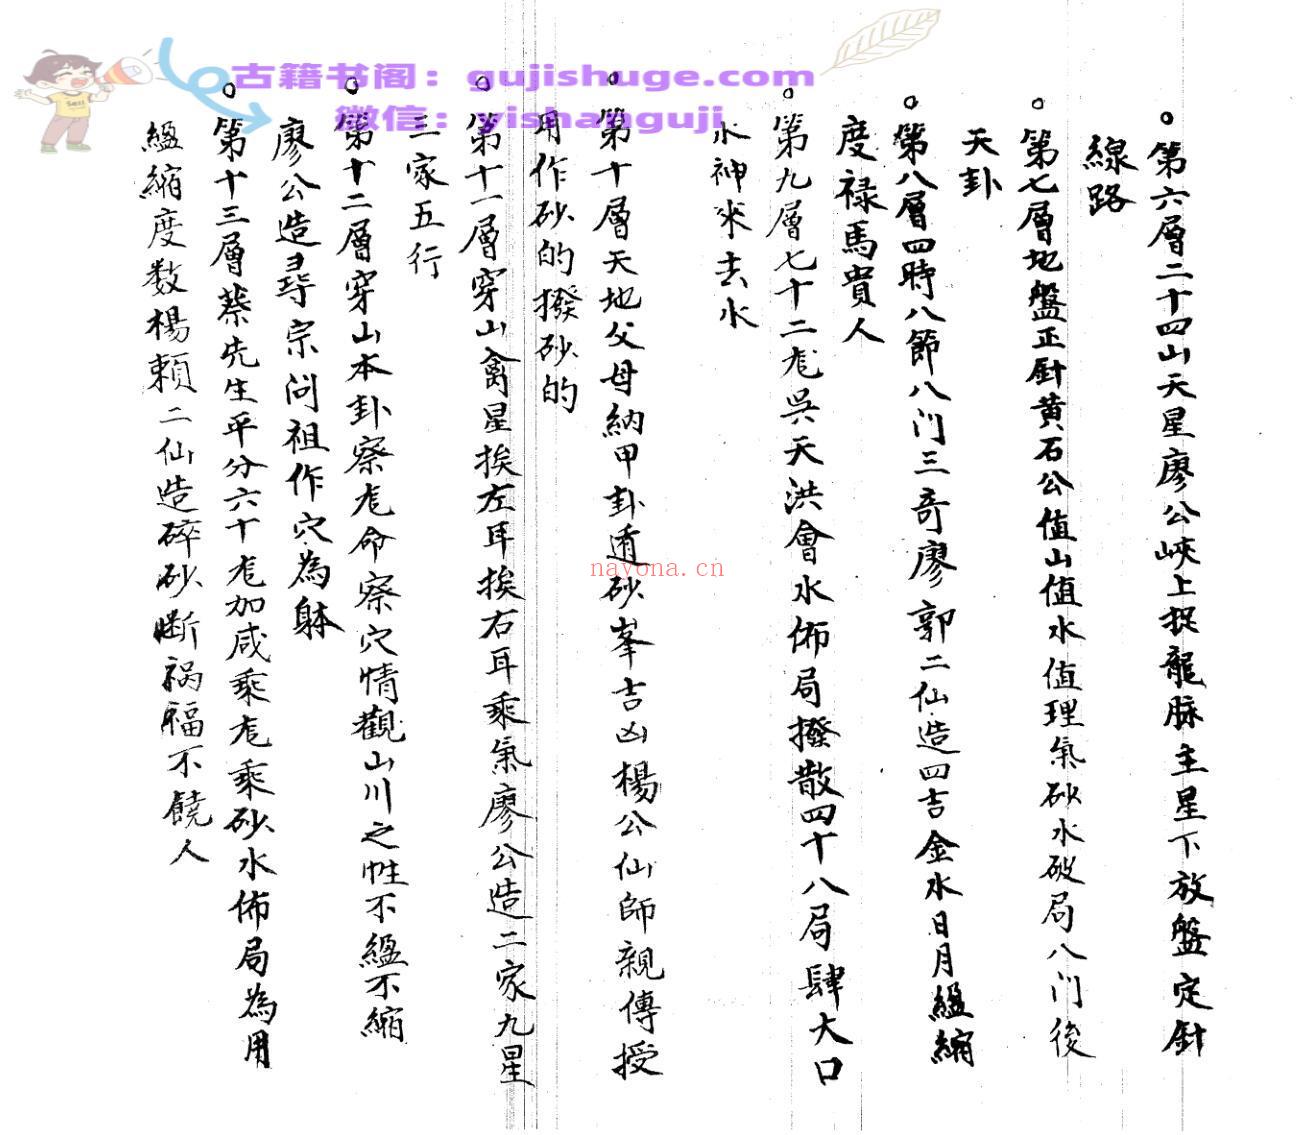 古籍书阁：gujishuge.com
微信：yishanguji
nayona.cn
。第六層二十四山天星廖公峽上捉龍脉主星下放盤定針
線路
。第七層地盤正針黄石公值山值水值理氣砂水破局八门後
天卦
。第八層四時八節八门三奇廖郭二仙造四吉金水日月緼縮
度禄馬貴人
。第九層七十二尨吴天洪會水佈局撥散四十八局肆大口
水神來去水
。第十層天地父母納甲卦遁砂峯吉凶楊公仙師親傳授
用作砂的撥砂的
。第十一層穿山禽星挨左耳挨右耳乘氣廖公造二家九星
三家五行
。第十二層穿山本卦察尨命察穴情觀山川之性不緼不縮
廖公造尋宗问祖作穴為躰
。第十三層蔡先生平分六十尨加咸乘尨乘砂水佈局為用
緼縮度数楊賴二仙造碎砂斷禍福不饒人